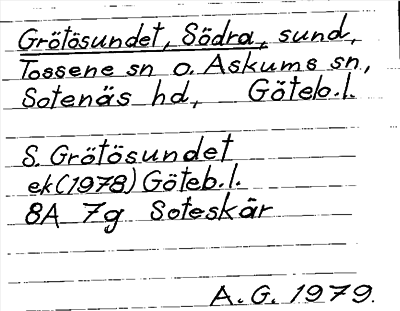 Grötösundet, Södra, sund,
Tossene sn o. Askums sn,
Sotenäs hd, Göteb.l.
S. Grötösundet
ek(1978) Göteb.l.
8A 7g Soteskär
A.G. 1979.